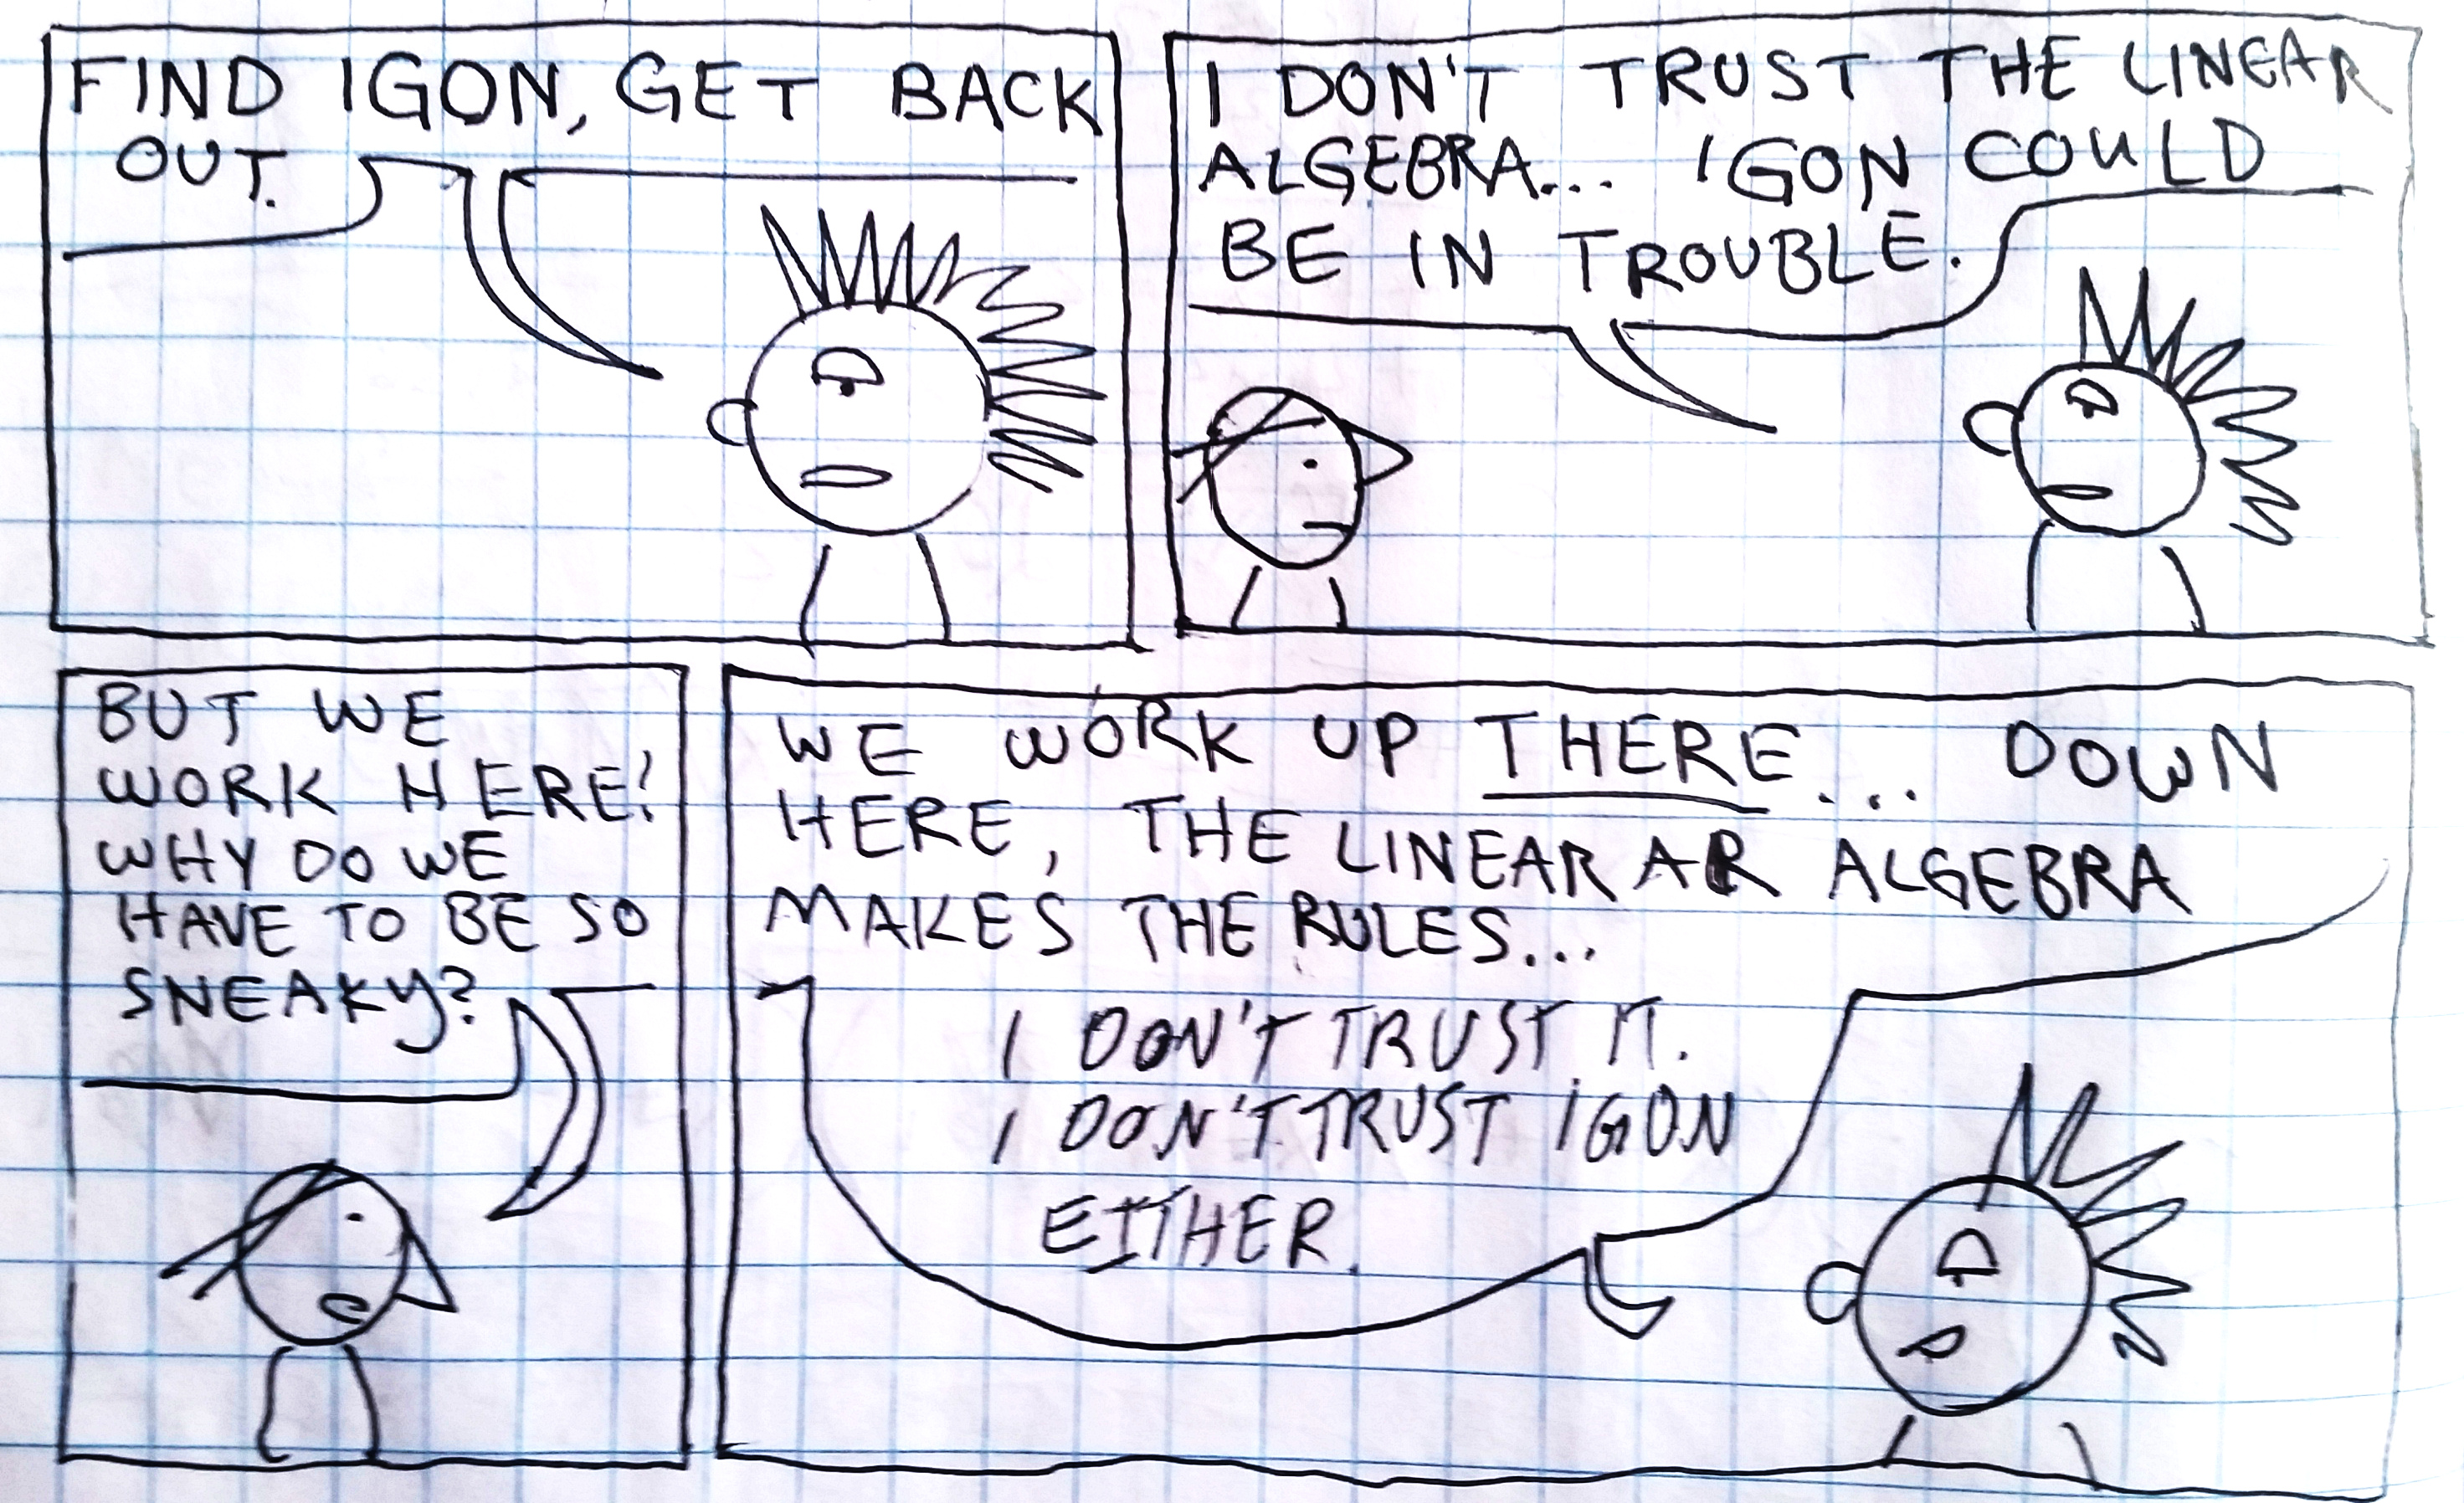 FIND IGON, GET BACK
OUT.
I DON'T TRUST THE LINEAR
ALGEBRA... IGON COULD
BE IN TROUBLE.
BUT WE
WORK HERE!
WHY DO WE
HAVE TO BE SO
SNEAKY?
WE WORK UP THERE... DOWN
HERE, THE LINEAR AR ALGEBRA
MAKES THE RULES...
I DON'T TRUST IT.
I DON'T TRUST IGON
EITHER.